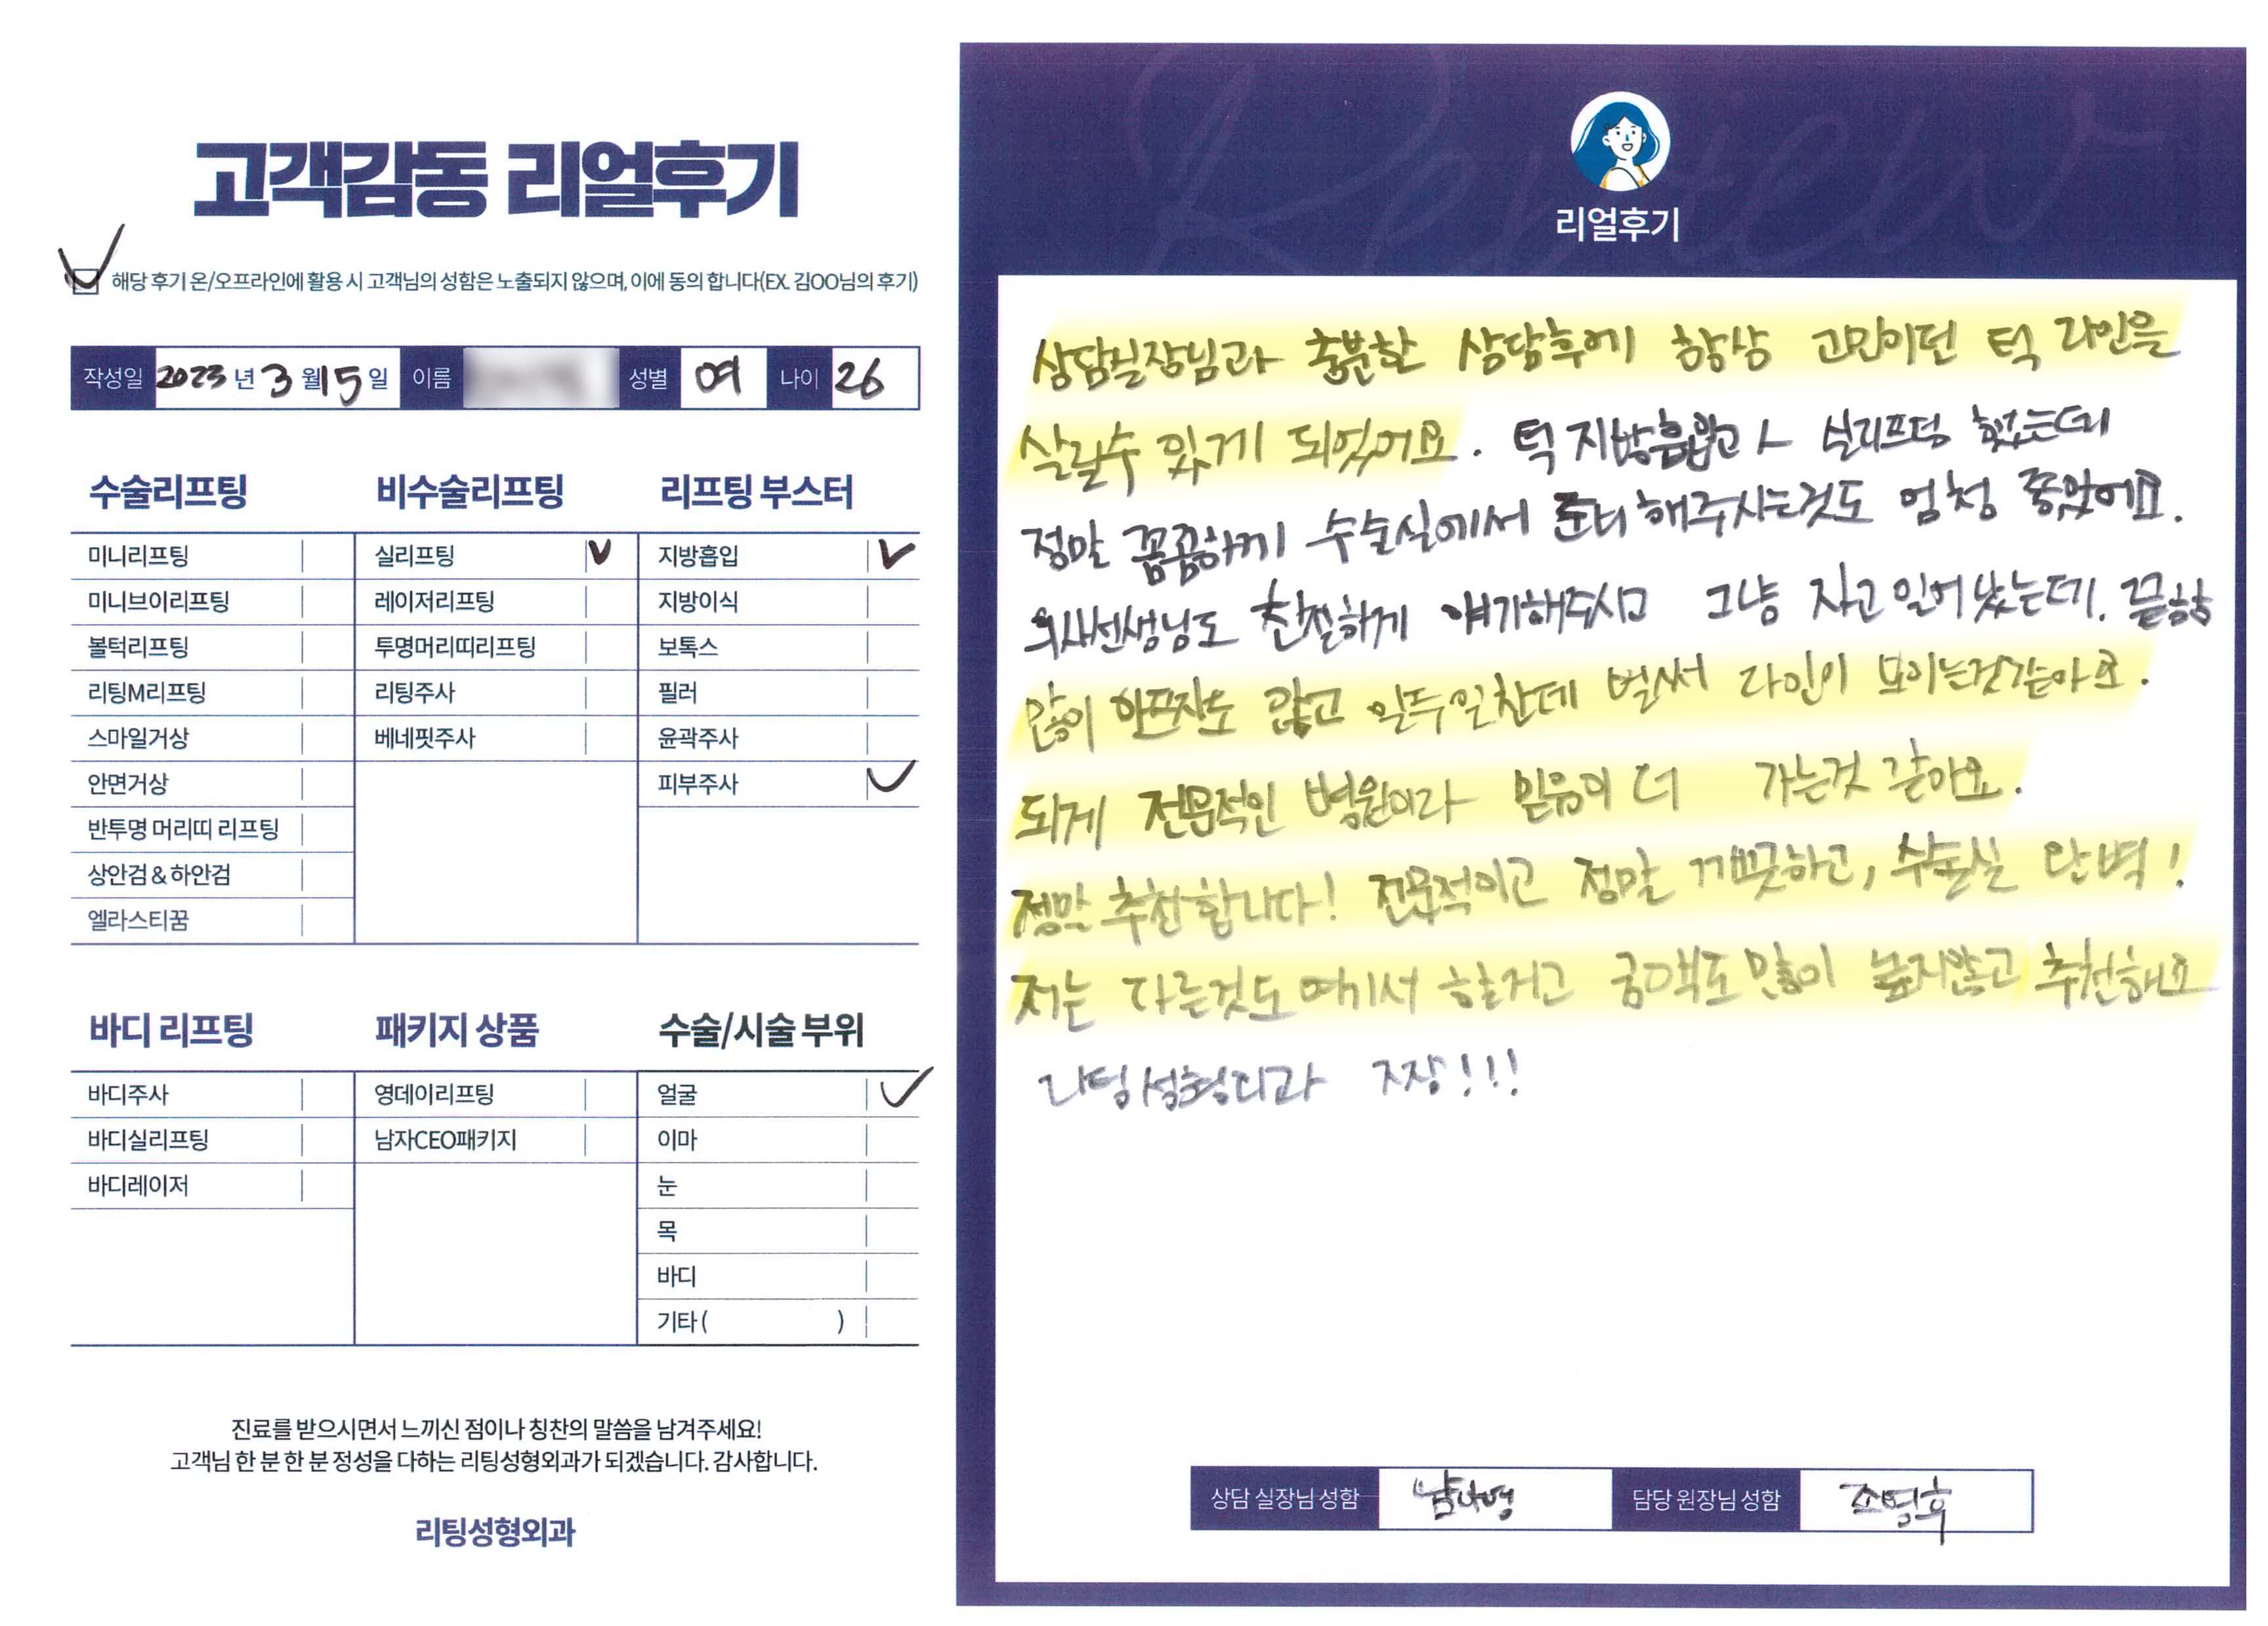 고객감동 리얼후기
해당 후기 온/오프라인에 활용 시 고객님의 성함은 노출되지 않으며, 이에 동의 합니다(EX. 김OO님의 후기)
작성일 2023 년 3 월 15 일 이름 성별 여 나이 26
수술리프팅
미니리프팅
미니브이리프팅
볼턱리프팅
리팅M리프팅
스마일거상
안면거상
반투명 머리띠 리프팅
상안검 & 하안검
엘라스티꿈
비수술리프팅
실리프팅 V
레이저리프팅
투명머리띠리프팅
리팅주사
베네핏주사
리프팅 부스터
지방흡입 ✓
지방이식
보톡스
필러
윤곽주사
피부주사 ✓
바디 리프팅
바디주사
바디실리프팅
바디레이저
패키지 상품
영데이리프팅
남자CEO패키지
수술/시술 부위
얼굴 ✓
이마
눈
목
바디
기타 ( )
진료를 받으시면서 느끼신 점이나 칭찬의 말씀을 남겨주세요!
고객님 한 분 한 분 정성을 다하는 리팅성형외과가 되겠습니다. 감사합니다.
리팅성형외과
Review
리얼후기
상담실장님과 충분한 상담후에 항상 고민이던 턱 라인을
살릴수 있게 되었어요. 턱 지방흡입과 실리프팅 했는데
정말 꼼꼼하게 수술실에서 준비해주시는것도 엄청 좋았어요.
의사선생님도 친절하게 얘기해주시고 그냥 자고 일어났는데. 끝남
많이 아프지도 않고 일주일찬데 벌써 라인이 보이는것같아요.
되게 전문적인 병원이라 믿음이 더 가는것 같아요.
정말 추천합니다! 전문적이고 정말 깨끗하고, 수술실 완벽!
저는 다른것도 여기서 할거고 금액도 많이 높지않고 추천해요
리팅성형외과 짱!!!
상담 실장님 성함 남나영 담당 원장님 성함